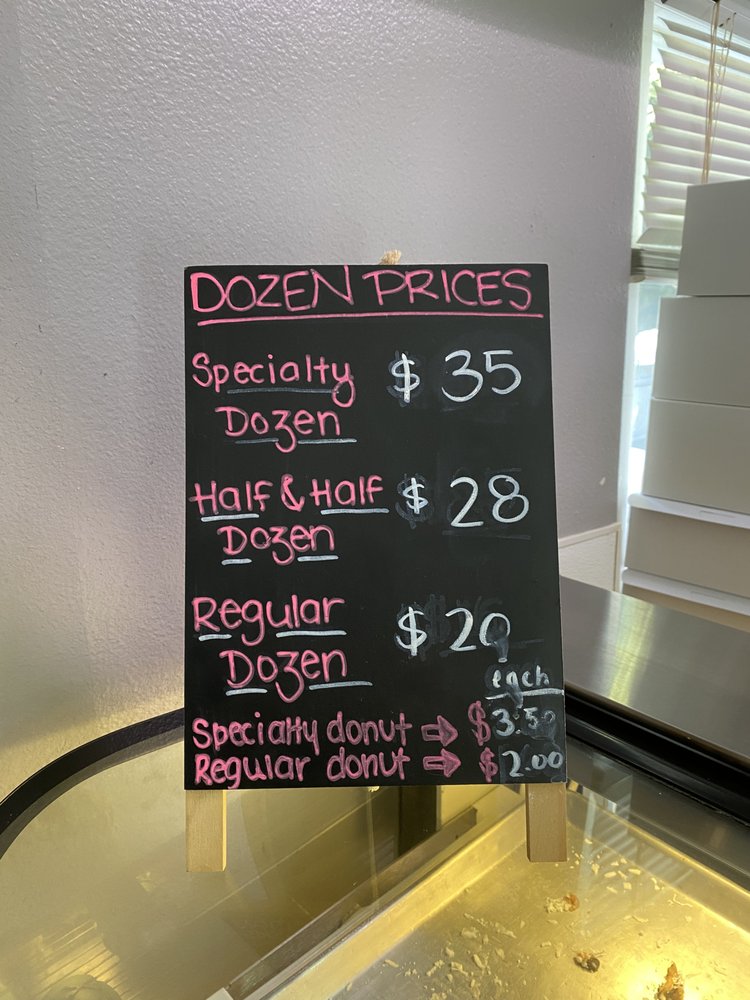 DOZEN PRICES
Specialty $ 35
Dozen
Half & Half $ 28
Dozen
Regular $ 20
Dozen
each
Specialty donut ⇨ $3.50
Regular donut ⇨ $2.00